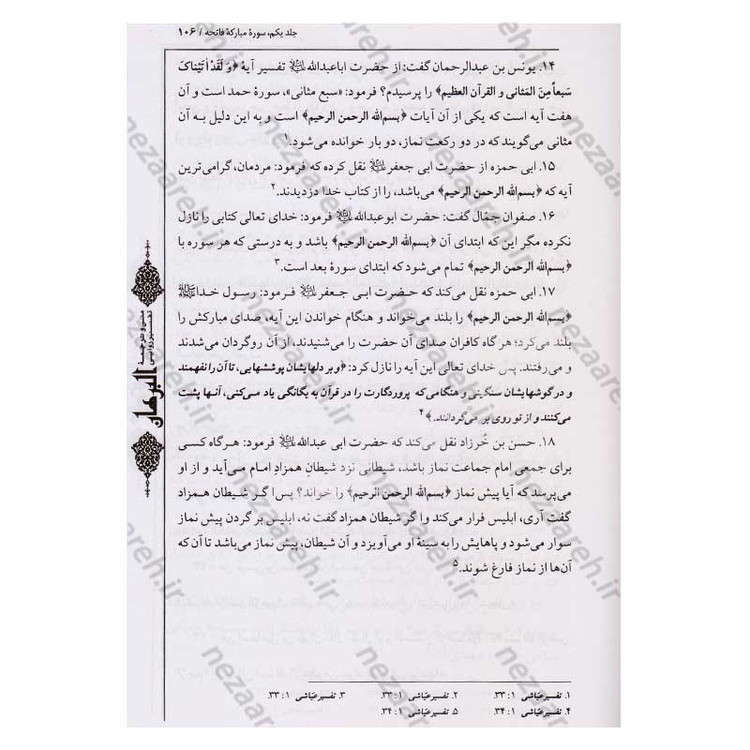 جلد یکم، سورهٔ مبارکهٔ فاتحه / ۱۰۶
۱۴. یونس بن عبدالرحمان گفت: از حضرت اباعبدالله علیه السلام تفسیر آیهٔ ﴿وَ لَقَدْ آتَیْناکَ
سَبعاً مِنَ المَثانی و القرآن العظیم﴾ را پرسیدم؟ فرمود: «سبع مثانی»، سورهٔ حمد است و آن
هفت آیه است که یکی از آن آیات ﴿بسم‌الله الرحمن الرحیم﴾ است و به این دلیل به آن
مثانی می‌گویند که در دو رکعت نماز، دو بار خوانده می‌شود.۱
۱۵. ابی حمزه از حضرت ابی جعفر علیه السلام نقل کرده که فرمود: مردمان، گرامی‌ترین
آیه که ﴿بسم‌الله الرحمن الرحیم﴾ می‌باشد، را از کتاب خدا دزدیدند.۲
۱۶. صفوان جمّال گفت: حضرت ابوعبدالله علیه السلام فرمود: خدای تعالی کتابی را نازل
نکرده مگر این که ابتدای آن ﴿بسم‌الله الرحمن الرحیم﴾ باشد و به درستی که هر سوره با
﴿بسم‌الله الرحمن الرحیم﴾ تمام می‌شود که ابتدای سورهٔ بعد است.۳
۱۷. ابی حمزه نقل می‌کند که حضرت ابی جعفر علیه السلام فرمود: رسول خدا ﷺ
﴿بسم‌الله الرحمن الرحیم﴾ را بلند می‌خواند و هنگام خواندن این آیه، صدای مبارکش را
بلند می‌کرد؛ هر گاه کافران صدای آن حضرت را می‌شنیدند، از آن روگردان می‌شدند
و می‌رفتند. پس خدای تعالی این آیه را نازل کرد: ﴿و بر دلهایشان پوششهایی، تا آن را نفهمند
و در گوشهایشان سنگینی و هنگامی‌که پروردگارت را در قرآن به یگانگی یاد می‌کنی، آنها پشت
می‌کنند و از تو روی بر می‌گردانند.﴾۴
۱۸. حسن بن خُرزاد نقل می‌کند که حضرت ابی عبدالله علیه السلام فرمود: هرگاه کسی
برای جمعی امام جماعت نماز باشد، شیطانی نزد شیطانِ همزادِ امام می‌آید و از او
می‌پرسد که آیا پیش نماز ﴿بسم‌الله الرحمن الرحیم﴾ را خواند؟ پس اگر شیطان همزاد
گفت آری، ابلیس فرار می‌کند و اگر شیطان همزاد گفت نه، ابلیس بر گردن پیش نماز
سوار می‌شود و پاهایش را به سینهٔ او می‌آویزد و آن شیطان، پیش نماز می‌باشد تا آن که
آن‌ها از نماز فارغ شوند.۵
متن و ترجمهٔ
تفسیر روایی
البرهان
۱. تفسیر عیّاشی ۱: ۳۳. ۲. تفسیر عیّاشی ۱: ۳۳. ۳. تفسیر عیّاشی ۱: ۳۳.
۴. تفسیر عیّاشی ۱: ۳۴. ۵. تفسیر عیّاشی ۱: ۳۴.
nezaareh.ir